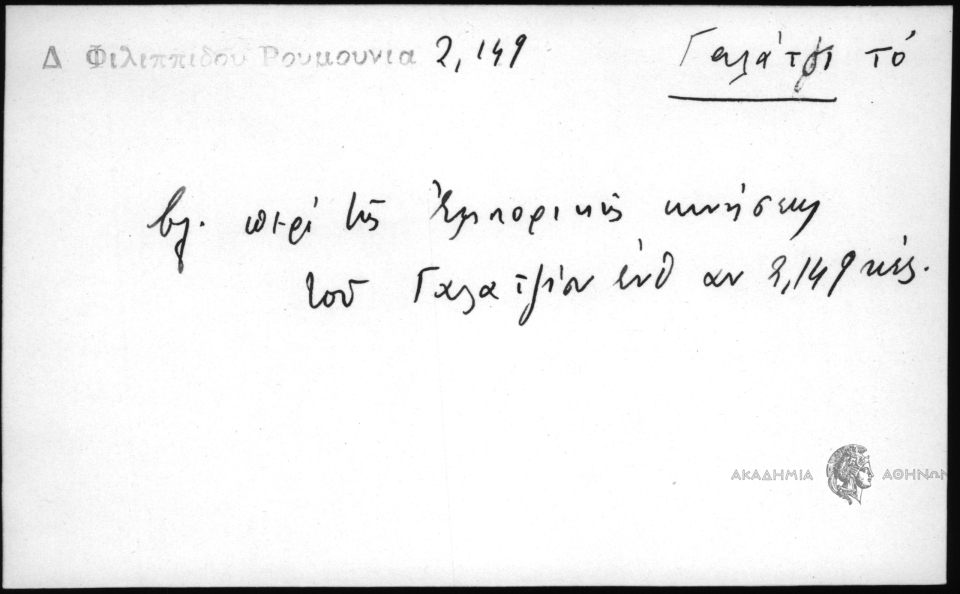 Δ Φιλιππίδου Ρουμουνία 2,149 Γαλάτζι τό
βλ. περί τῆς ἐμπορικῆς κινήσεως
τοῦ Γαλατζίου ἔνθ αν 2,149 κἑξ.
ΑΚΑΔΗΜΙΑ ΑΘΗΝΩΝ